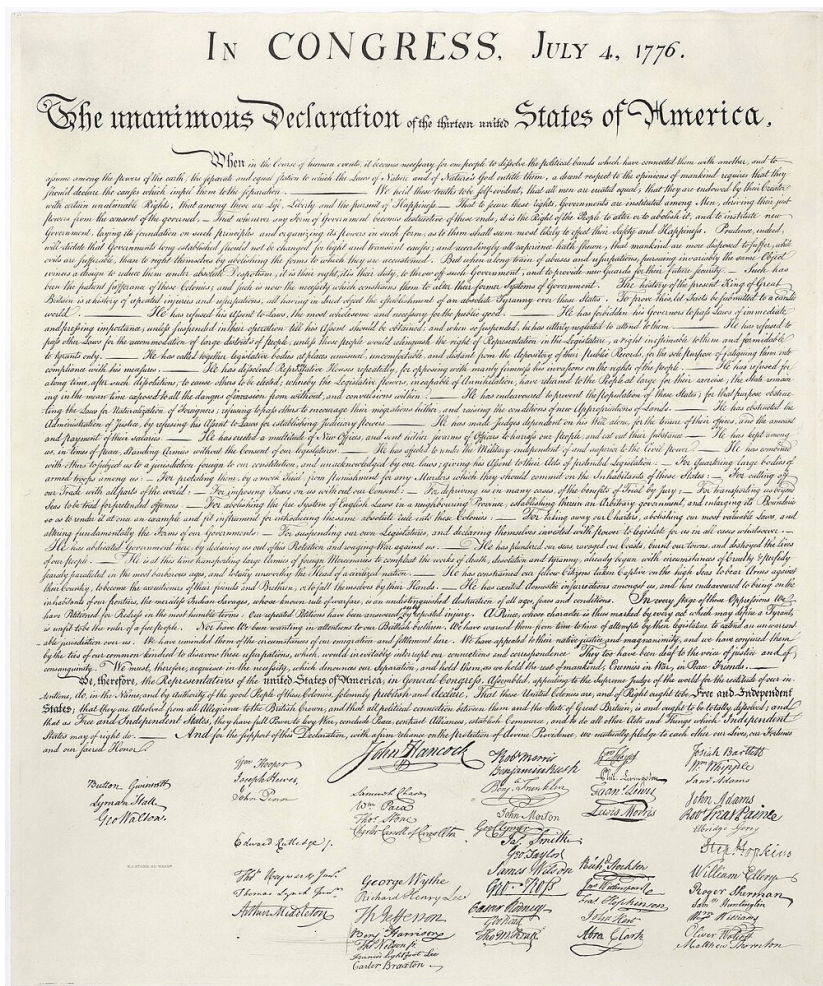 IN CONGRESS, JULY 4, 1776.
The unanimous Declaration of the thirteen united States of America,
When in the Course of human events, it becomes necessary for one people to dissolve the political bands which have connected them with another, and to
assume among the powers of the earth, the separate and equal station to which the Laws of Nature and of Nature's God entitle them, a decent respect to the opinions of mankind requires that they
should declare the causes which impel them to the separation. — We hold these truths to be self-evident, that all men are created equal, that they are endowed by their Creator
with certain unalienable Rights, that among these are Life, Liberty and the pursuit of Happiness. — That to secure these rights, Governments are instituted among Men, deriving their just
powers from the consent of the governed, — That whenever any Form of Government becomes destructive of these ends, it is the Right of the People to alter or to abolish it, and to institute new
Government, laying its foundation on such principles and organizing its powers in such form, as to them shall seem most likely to effect their Safety and Happiness. Prudence, indeed,
will dictate that Governments long established should not be changed for light and transient causes; and accordingly all experience hath shewn, that mankind are more disposed to suffer, while
evils are sufferable, than to right themselves by abolishing the forms to which they are accustomed. But when a long train of abuses and usurpations, pursuing invariably the same Object
evinces a design to reduce them under absolute Despotism, it is their right, it is their duty, to throw off such Government, and to provide new Guards for their future security. — Such has
been the patient sufferance of these Colonies; and such is now the necessity which constrains them to alter their former Systems of Government. The history of the present King of Great
Britain is a history of repeated injuries and usurpations, all having in direct object the establishment of an absolute Tyranny over these States. To prove this, let Facts be submitted to a candid
world. — He has refused his Assent to Laws, the most wholesome and necessary for the public good. — He has forbidden his Governors to pass Laws of immediate
and pressing importance, unless suspended in their operation till his Assent should be obtained; and when so suspended, he has utterly neglected to attend to them. — He has refused to
pass other Laws for the accommodation of large districts of people, unless those people would relinquish the right of Representation in the Legislature, a right inestimable to them and formidable
to tyrants only. — He has called together legislative bodies at places unusual, uncomfortable, and distant from the depository of their public Records, for the sole purpose of fatiguing them into
compliance with his measures. — He has dissolved Representative Houses repeatedly, for opposing with manly firmness his invasions on the rights of the people. — He has refused for
a long time, after such dissolutions, to cause others to be elected; whereby the Legislative powers, incapable of Annihilation, have returned to the People at large for their exercise; the State remain-
ing in the mean time exposed to all the dangers of invasion from without, and convulsions within. — He has endeavoured to prevent the population of these States; for that purpose obstruc-
ting the Laws for Naturalization of Foreigners; refusing to pass others to encourage their migrations hither, and raising the conditions of new Appropriations of Lands. — He has obstructed the
Administration of Justice, by refusing his Assent to Laws for establishing Judiciary powers. — He has made Judges dependent on his Will alone, for the tenure of their offices, and the amount
and payment of their salaries. — He has erected a multitude of New Offices, and sent hither swarms of Officers to harrass our people, and eat out their substance. — He has kept among
us, in times of peace, Standing Armies without the Consent of our legislatures. — He has affected to render the Military independent of and superior to the Civil power. — He has combined
with others to subject us to a jurisdiction foreign to our constitution, and unacknowledged by our laws; giving his Assent to their Acts of pretended Legislation: — For Quartering large bodies of
armed troops among us: — For protecting them, by a mock Trial, from punishment for any Murders which they should commit on the Inhabitants of these States: — For cutting off
our Trade with all parts of the world: — For imposing Taxes on us without our Consent: — For depriving us in many cases, of the benefits of Trial by Jury: — For transporting us beyond
Seas to be tried for pretended offences — For abolishing the free System of English Laws in a neighbouring Province, establishing therein an Arbitrary government, and enlarging its Boundaries
so as to render it at once an example and fit instrument for introducing the same absolute rule into these Colonies: — For taking away our Charters, abolishing our most valuable Laws, and
altering fundamentally the Forms of our Governments: — For suspending our own Legislatures, and declaring themselves invested with power to legislate for us in all cases whatsoever. —
He has abdicated Government here, by declaring us out of his Protection and waging War against us. — He has plundered our seas, ravaged our Coasts, burnt our towns, and destroyed the lives
of our people. — He is at this time transporting large Armies of foreign Mercenaries to compleat the works of death, desolation and tyranny, already begun with circumstances of Cruelty & perfidy
scarcely paralleled in the most barbarous ages, and totally unworthy the Head of a civilized nation. — He has constrained our fellow Citizens taken Captive on the high Seas to bear Arms against
their Country, to become the executioners of their friends and Brethren, or to fall themselves by their Hands. — He has excited domestic insurrections amongst us, and has endeavoured to bring on the
inhabitants of our frontiers, the merciless Indian Savages, whose known rule of warfare, is an undistinguished destruction of all ages, sexes and conditions. In every stage of these Oppressions We
have Petitioned for Redress in the most humble terms: Our repeated Petitions have been answered only by repeated injury. A Prince, whose character is thus marked by every act which may define a Tyrant,
is unfit to be the ruler of a free people. Nor have We been wanting in attentions to our Brittish brethren. We have warned them from time to time of attempts by their legislature to extend an unwarrant-
able jurisdiction over us. We have reminded them of the circumstances of our emigration and settlement here. We have appealed to their native justice and magnanimity, and we have conjured them
by the ties of our common kindred to disavow these usurpations, which, would inevitably interrupt our connections and correspondence. They too have been deaf to the voice of justice and of
consanguinity. We must, therefore, acquiesce in the necessity, which denounces our Separation, and hold them, as we hold the rest of mankind, Enemies in War, in Peace Friends. —
We, therefore, the Representatives of the united States of America, in General Congress, Assembled, appealing to the Supreme Judge of the world for the rectitude of our in-
tentions, do, in the Name, and by Authority of the good People of these Colonies, solemnly publish and declare, That these United Colonies are, and of Right ought to be Free and Independent
States; that they are Absolved from all Allegiance to the British Crown, and that all political connection between them and the State of Great Britain, is and ought to be totally dissolved; and
that as Free and Independent States, they have full Power to levy War, conclude Peace, contract Alliances, establish Commerce, and to do all other Acts and Things which Independent
States may of right do. — And for the support of this Declaration, with a firm reliance on the protection of divine Providence, we mutually pledge to each other our Lives, our Fortunes
and our sacred Honor.
Button Gwinnett
Lyman Hall
Geo Walton.
Wm Hooper
Joseph Hewes,
John Penn
Edward Rutledge /.
Thos Heyward Junr.
Thomas Lynch Junr.
Arthur Middleton
John Hancock
Samuel Chase
Wm Paca
Thos Stone
Charles Carroll of Carrollton
George Wythe
Richard Henry Lee
Th Jefferson
Benj Harrison
Thos Nelson jr.
Francis Lightfoot Lee
Carter Braxton
Robt Morris
Benjamin Rush
Benj. Franklin
John Morton
Geo Clymer
Jas. Smith
Geo. Taylor
James Wilson
Geo. Ross
Caesar Rodney
Geo Read
Tho M:Kean
Wm Floyd
Phil. Livingston
Frans. Lewis
Lewis Morris
Richd. Stockton
Jno Witherspoon
Fras. Hopkinson
John Hart
Abra Clark
Josiah Bartlett
Wm Whipple
Saml Adams
John Adams
Robt Treat Paine
Elbridge Gerry
Step. Hopkins
William Ellery
Roger Sherman
Saml Huntington
Wm Williams
Oliver Wolcott
Matthew Thornton